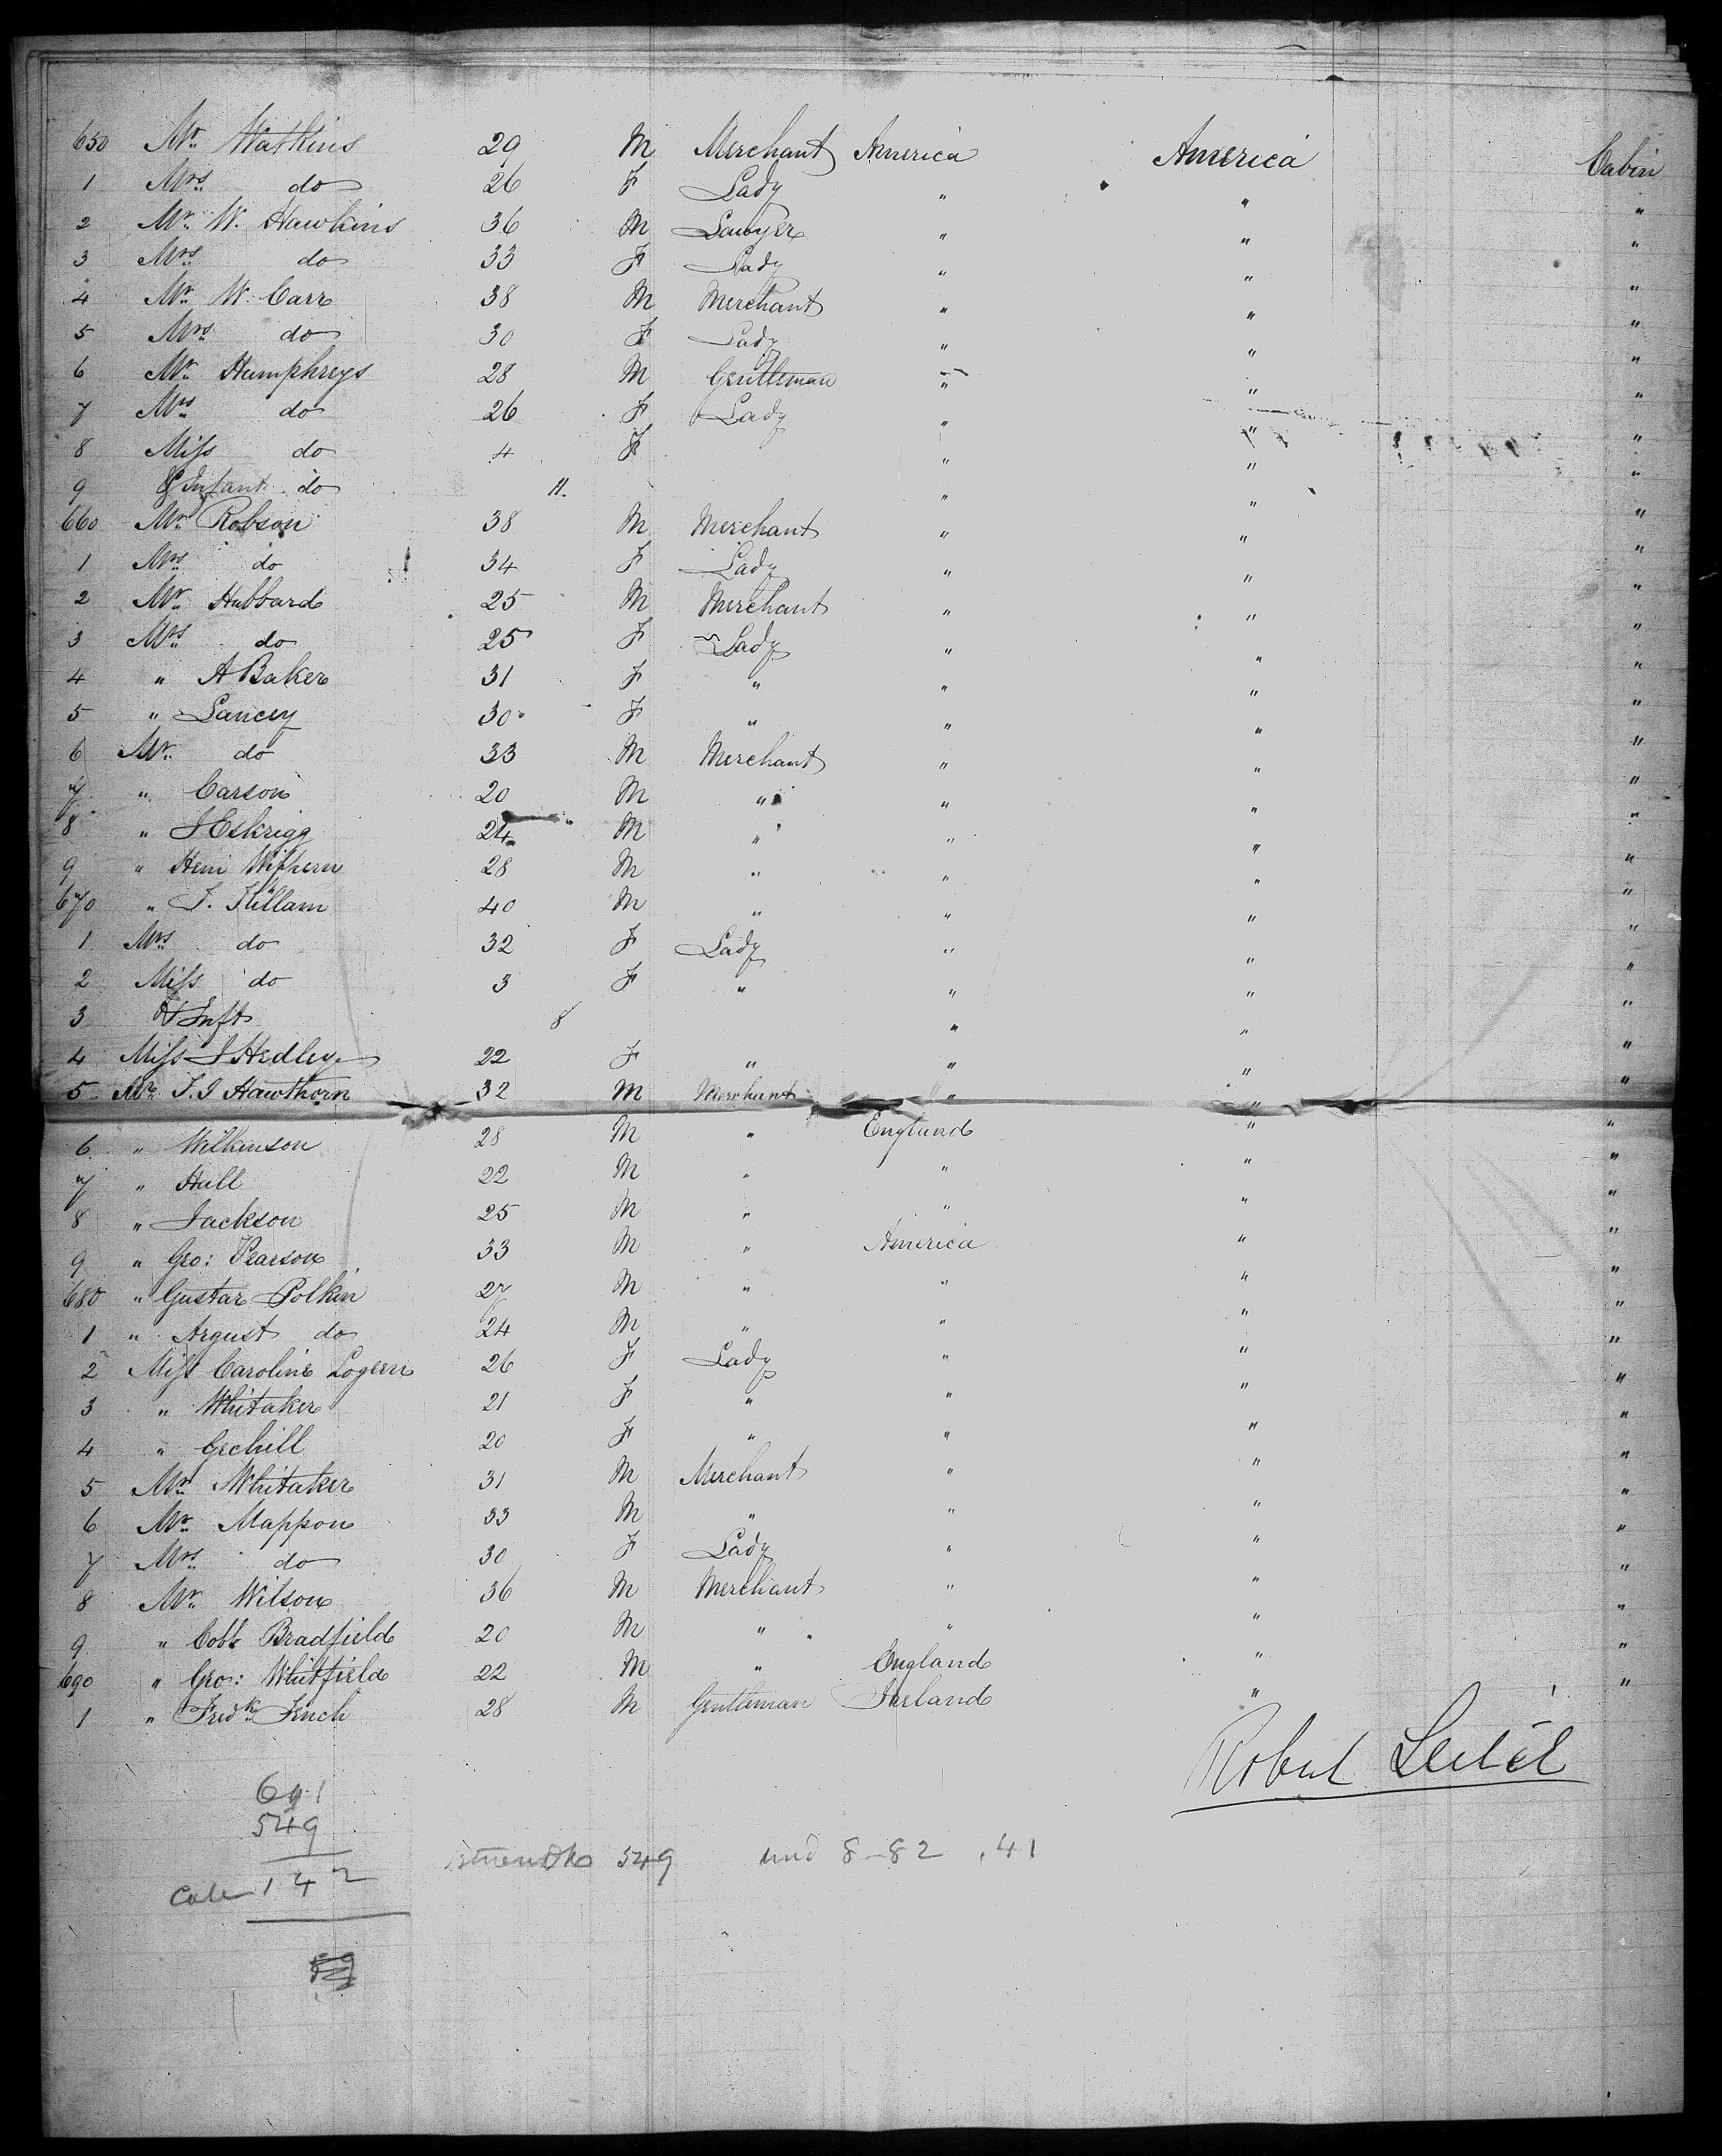 650 Mr. Watkins 29 M Merchant America America Cabin
1 Mrs. do 26 F Lady " " "
2 Mr. W. Hawkins 36 M Lawyer " " "
3 Mrs. do 33 F Lady " " "
4 Mr. W. Carr 38 M Merchant " " "
5 Mrs. do 30 F Lady " " "
6 Mr. Humphreys 28 M Gentleman " " "
7 Mrs. do 26 F Lady " " "
8 Miss do 4 F " " "
9 & Infant do 11. " " "
660 Mr. Robson 38 M Merchant " " "
1 Mrs. do 34 F Lady " " "
2 Mr. Hubbard 25 M Merchant " " "
3 Mrs. do 25 F Lady " " "
4 " A Baker 31 F " " " "
5 " Lancey 30 F " " " "
6 Mr. do 33 M Merchant " " "
7 " Carson 20 M " " " "
8 " J Eskrigg 24 M " " " "
9 " 28 M " " " "
670 " J. Killam 40 M " " " "
1 Mrs. do 32 F Lady " " "
2 Miss do 3 F " " " "
3 & Inft 8 " " "
4 Miss J Hedley 22 F " " " "
5 Mr. T. J Hawthorn 32 M Merchant " " "
6 " Wilkinson 28 M " England " "
7 " Hull 22 M " " " "
8 " Jackson 25 M " " " "
9 " Geo: Pearson 33 M " America " "
680 " Gustar Polkin 27 M " " " "
1 " Argust do 24 M " " " "
2 Miss Caroline Logeen 26 F Lady " " "
3 " Whitaker 21 F " " " "
4 " Gechill 20 F " " " "
5 Mr. Whitaker 31 M Merchant " " "
6 Mr. Mappon 33 M " " " "
7 Mrs. do 30 F Lady " " "
8 Mr. Wilson 36 M Merchant " " "
9 " Cobb Bradfield 20 M " " " "
690 " Geo: Whitfield 22 M " England " "
1 " Fredk. Finch 28 M Gentleman Ireland " "
Robert
691
549
142
549 und 8-82 . 41